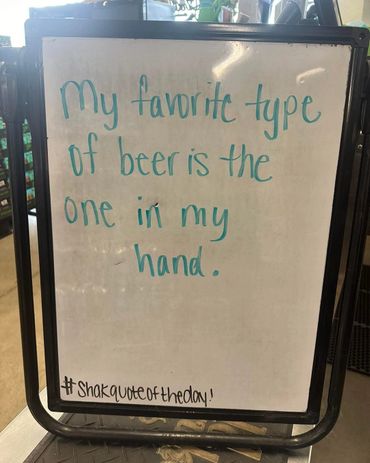 My favorite type
of beer is the
one in my
hand.
#shakquoteoftheday!